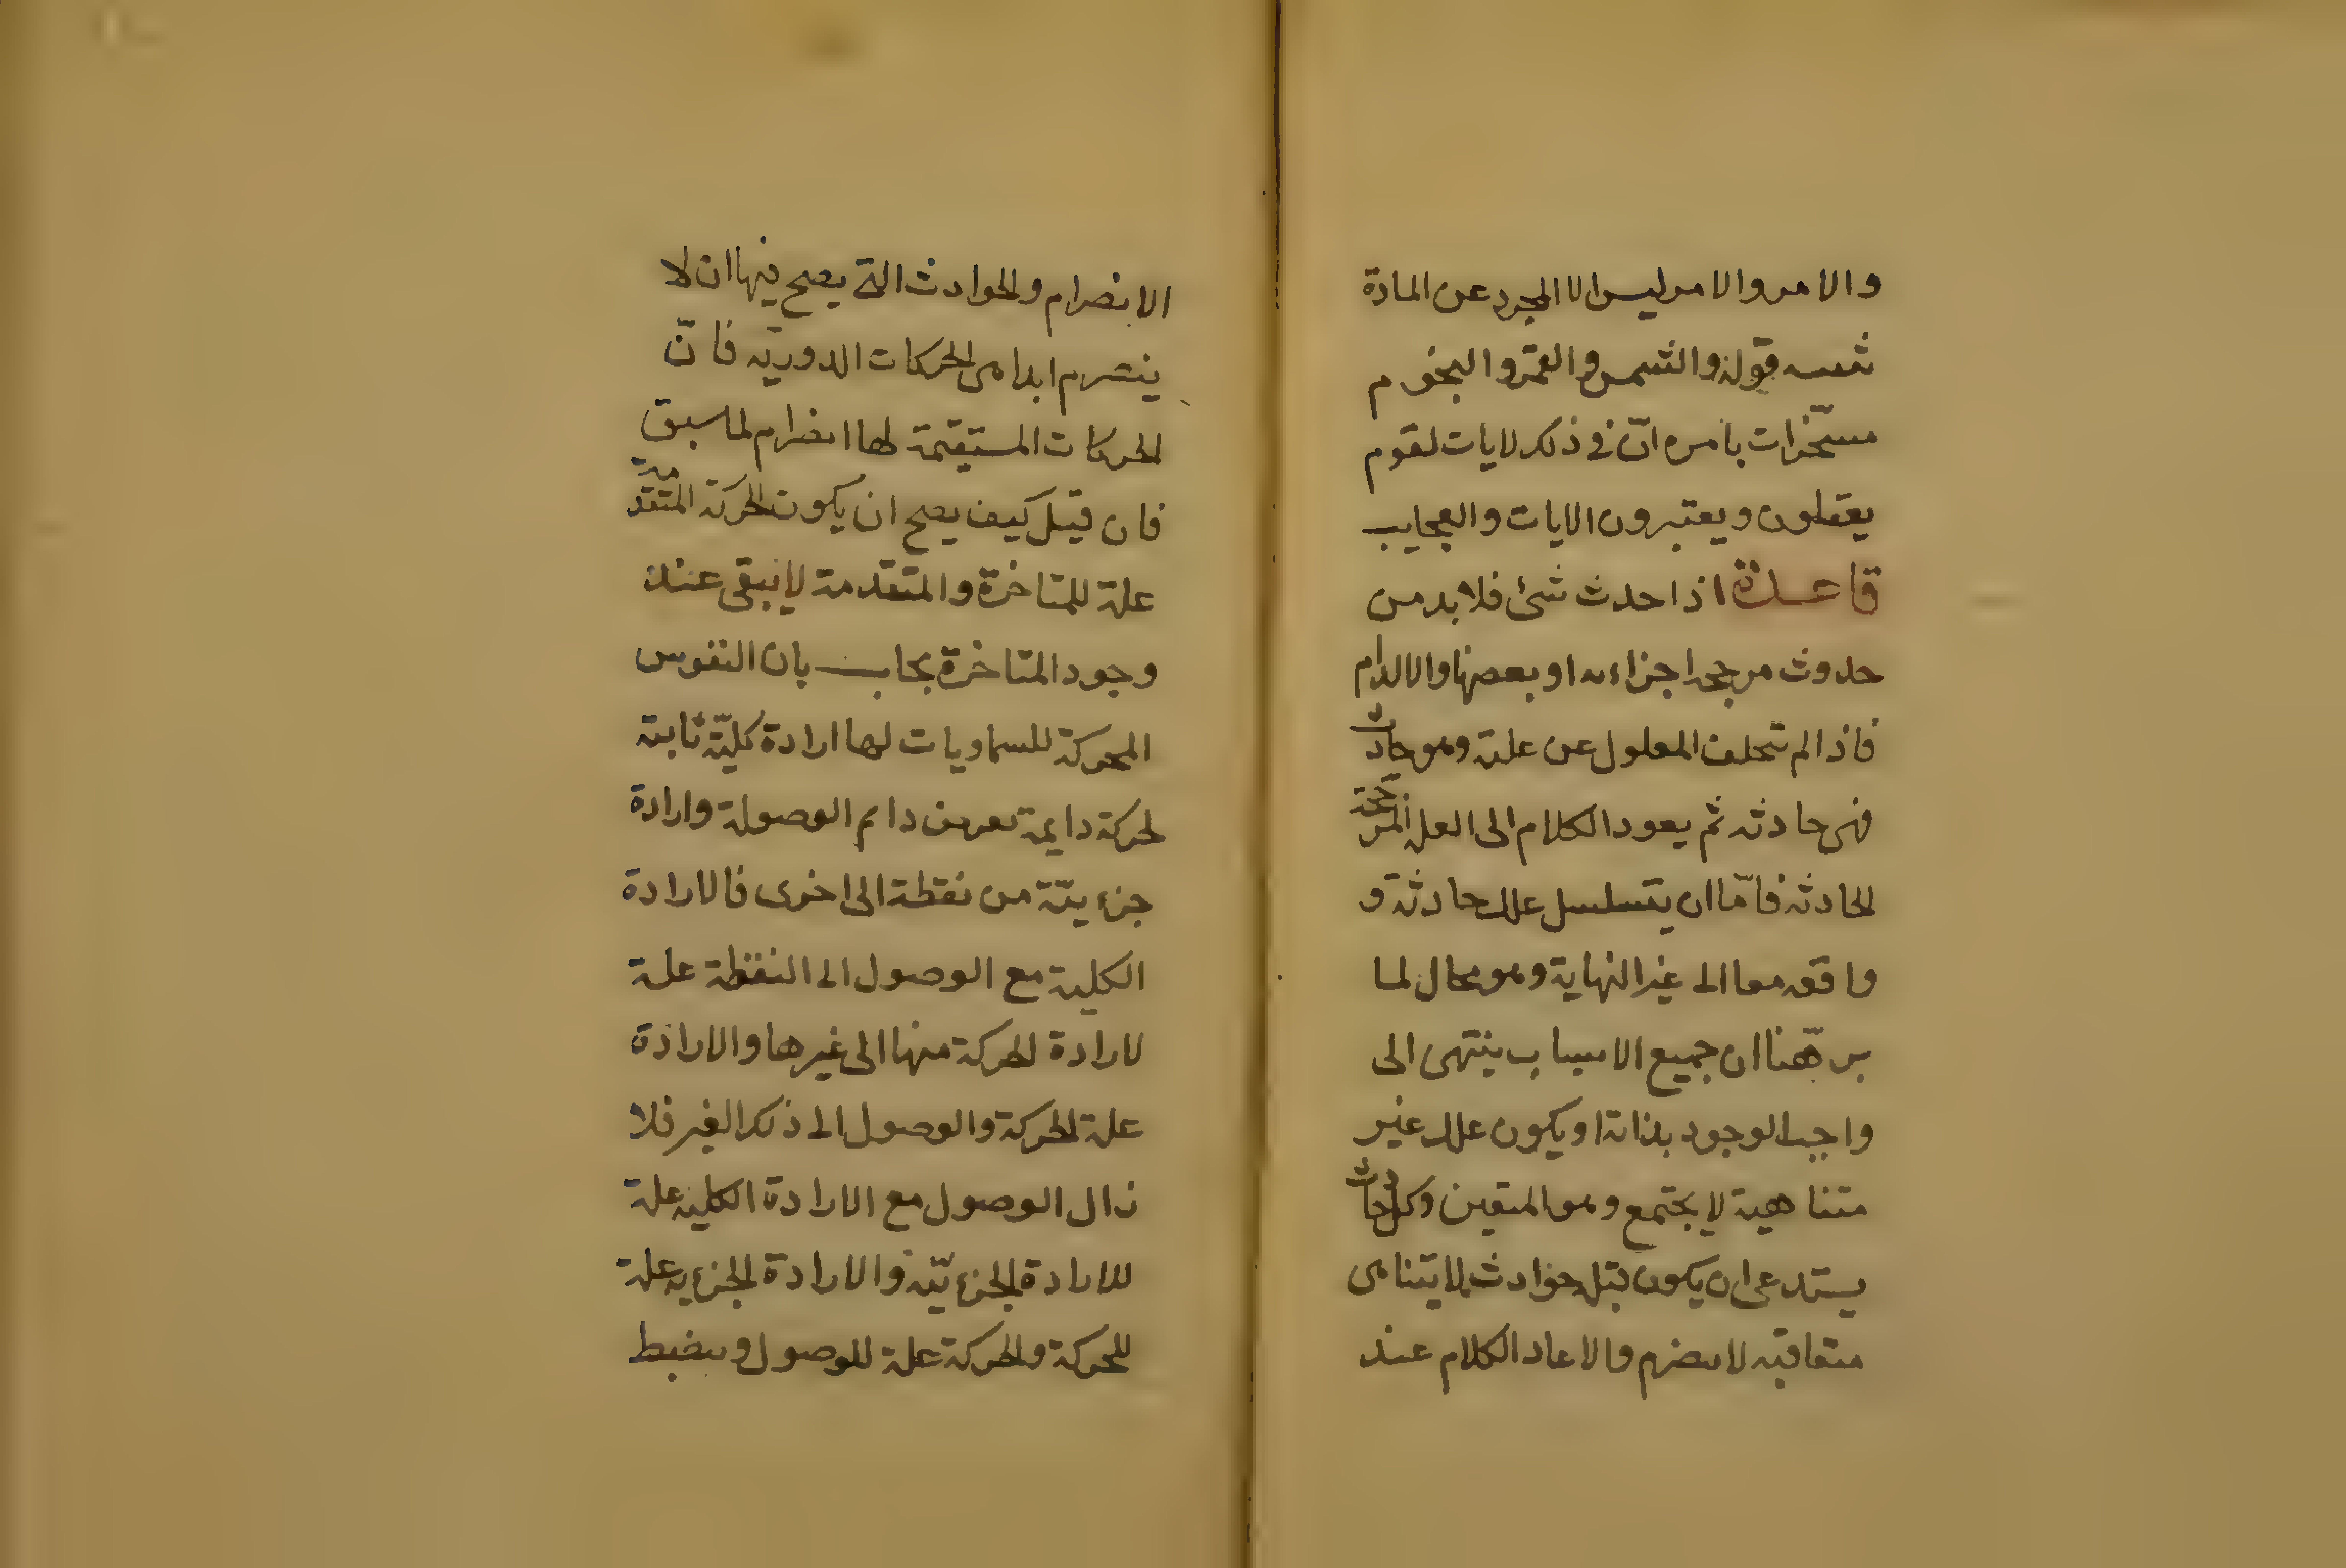 والامر والامر ليس الا المجرد عن المادة
قوله والشمس والقمر والنجوم
مسخّرات بامره انّ فى ذلك لايات لقوم
يعقلون ويعتبرون الايات والعجايب
قاعدة اذا حدث شئ فلا بد من
حدوث مرجح اجزاءه او بعضها والا لدام
فاذا لم يتخلف المعلول عن علته وهو حادث
فهى حادثه ثم يعود الكلام الى العلة المرجحة
الحادثه فامّا ان يتسلسل علل حادثة و
واقعه معا الى غير النهاية وهو محال لما
برهّنا ان جميع الاسباب ينتهى الى
واجب الوجود بذاته او يكون علل غير
متناهية لا يجتمع وهو المتعين وكل حادث
يستدعى ان يكون قبل حوادث لا يتناهى
متعاقبه لا ينصرم والا عاد الكلام عند
الانصرام والحوادث التى يصح فيها ان لا
ينصرم ابدا هى الحركات الدوريّه فانّ
الحركات المستقيمة لها انصرام لما سبق
فان قيل كيف يصح ان يكون الحركة المتقدمة
علة للمتاخرة والمتقدمة لا يبقى عند
وجود المتاخرة يجاب بان النفوس
المحركة للسماويات لها ارادة كليّة ثابتة
لحركة دايمة لغرض دايم الوصول وارادة
جزءيّة من نقطة الى اخرى فالارادة
الكلية مع الوصول الى النقطة علة
لارادة الحركة منها الى غيرها والارادة
علة الحركة والوصول الى ذلك الغير فلا
زال الوصول مع الارادة الكليه علة
للارادة الجزءيّه والارادة الجزءيه علة
للحركة والحركة علة للوصول وينضبط